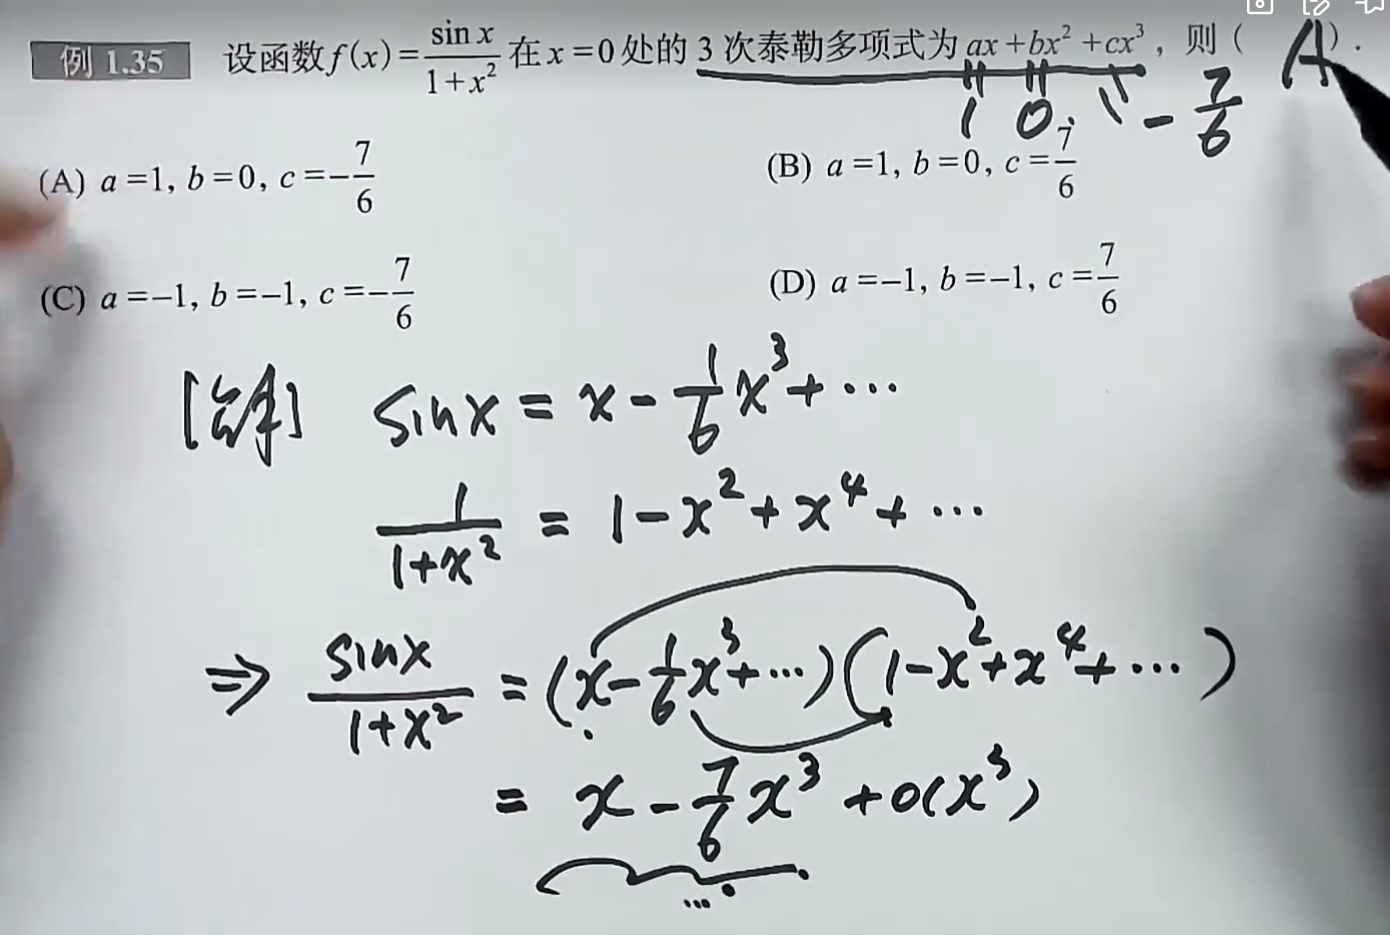 例 1.35 设函数f(x)=\frac{sin x}{1+x²}在x=0处的3次泰勒多项式为ax+bx²+cx³，则( A ).
1 0 -\frac{7}{6}
(A) a=1, b=0, c=-\frac{7}{6} (B) a=1, b=0, c=\frac{7}{6}
(C) a=-1, b=-1, c=-\frac{7}{6} (D) a=-1, b=-1, c=\frac{7}{6}
[解] sinx = x - \frac{1}{6}x³ + ⋯
\frac{1}{1+x²} = 1-x²+x⁴+ ⋯
⇒ \frac{sinx}{1+x²} = (x-\frac{1}{6}x³+⋯)(1-x²+x⁴+⋯)
= x - \frac{7}{6}x³ + o(x³)